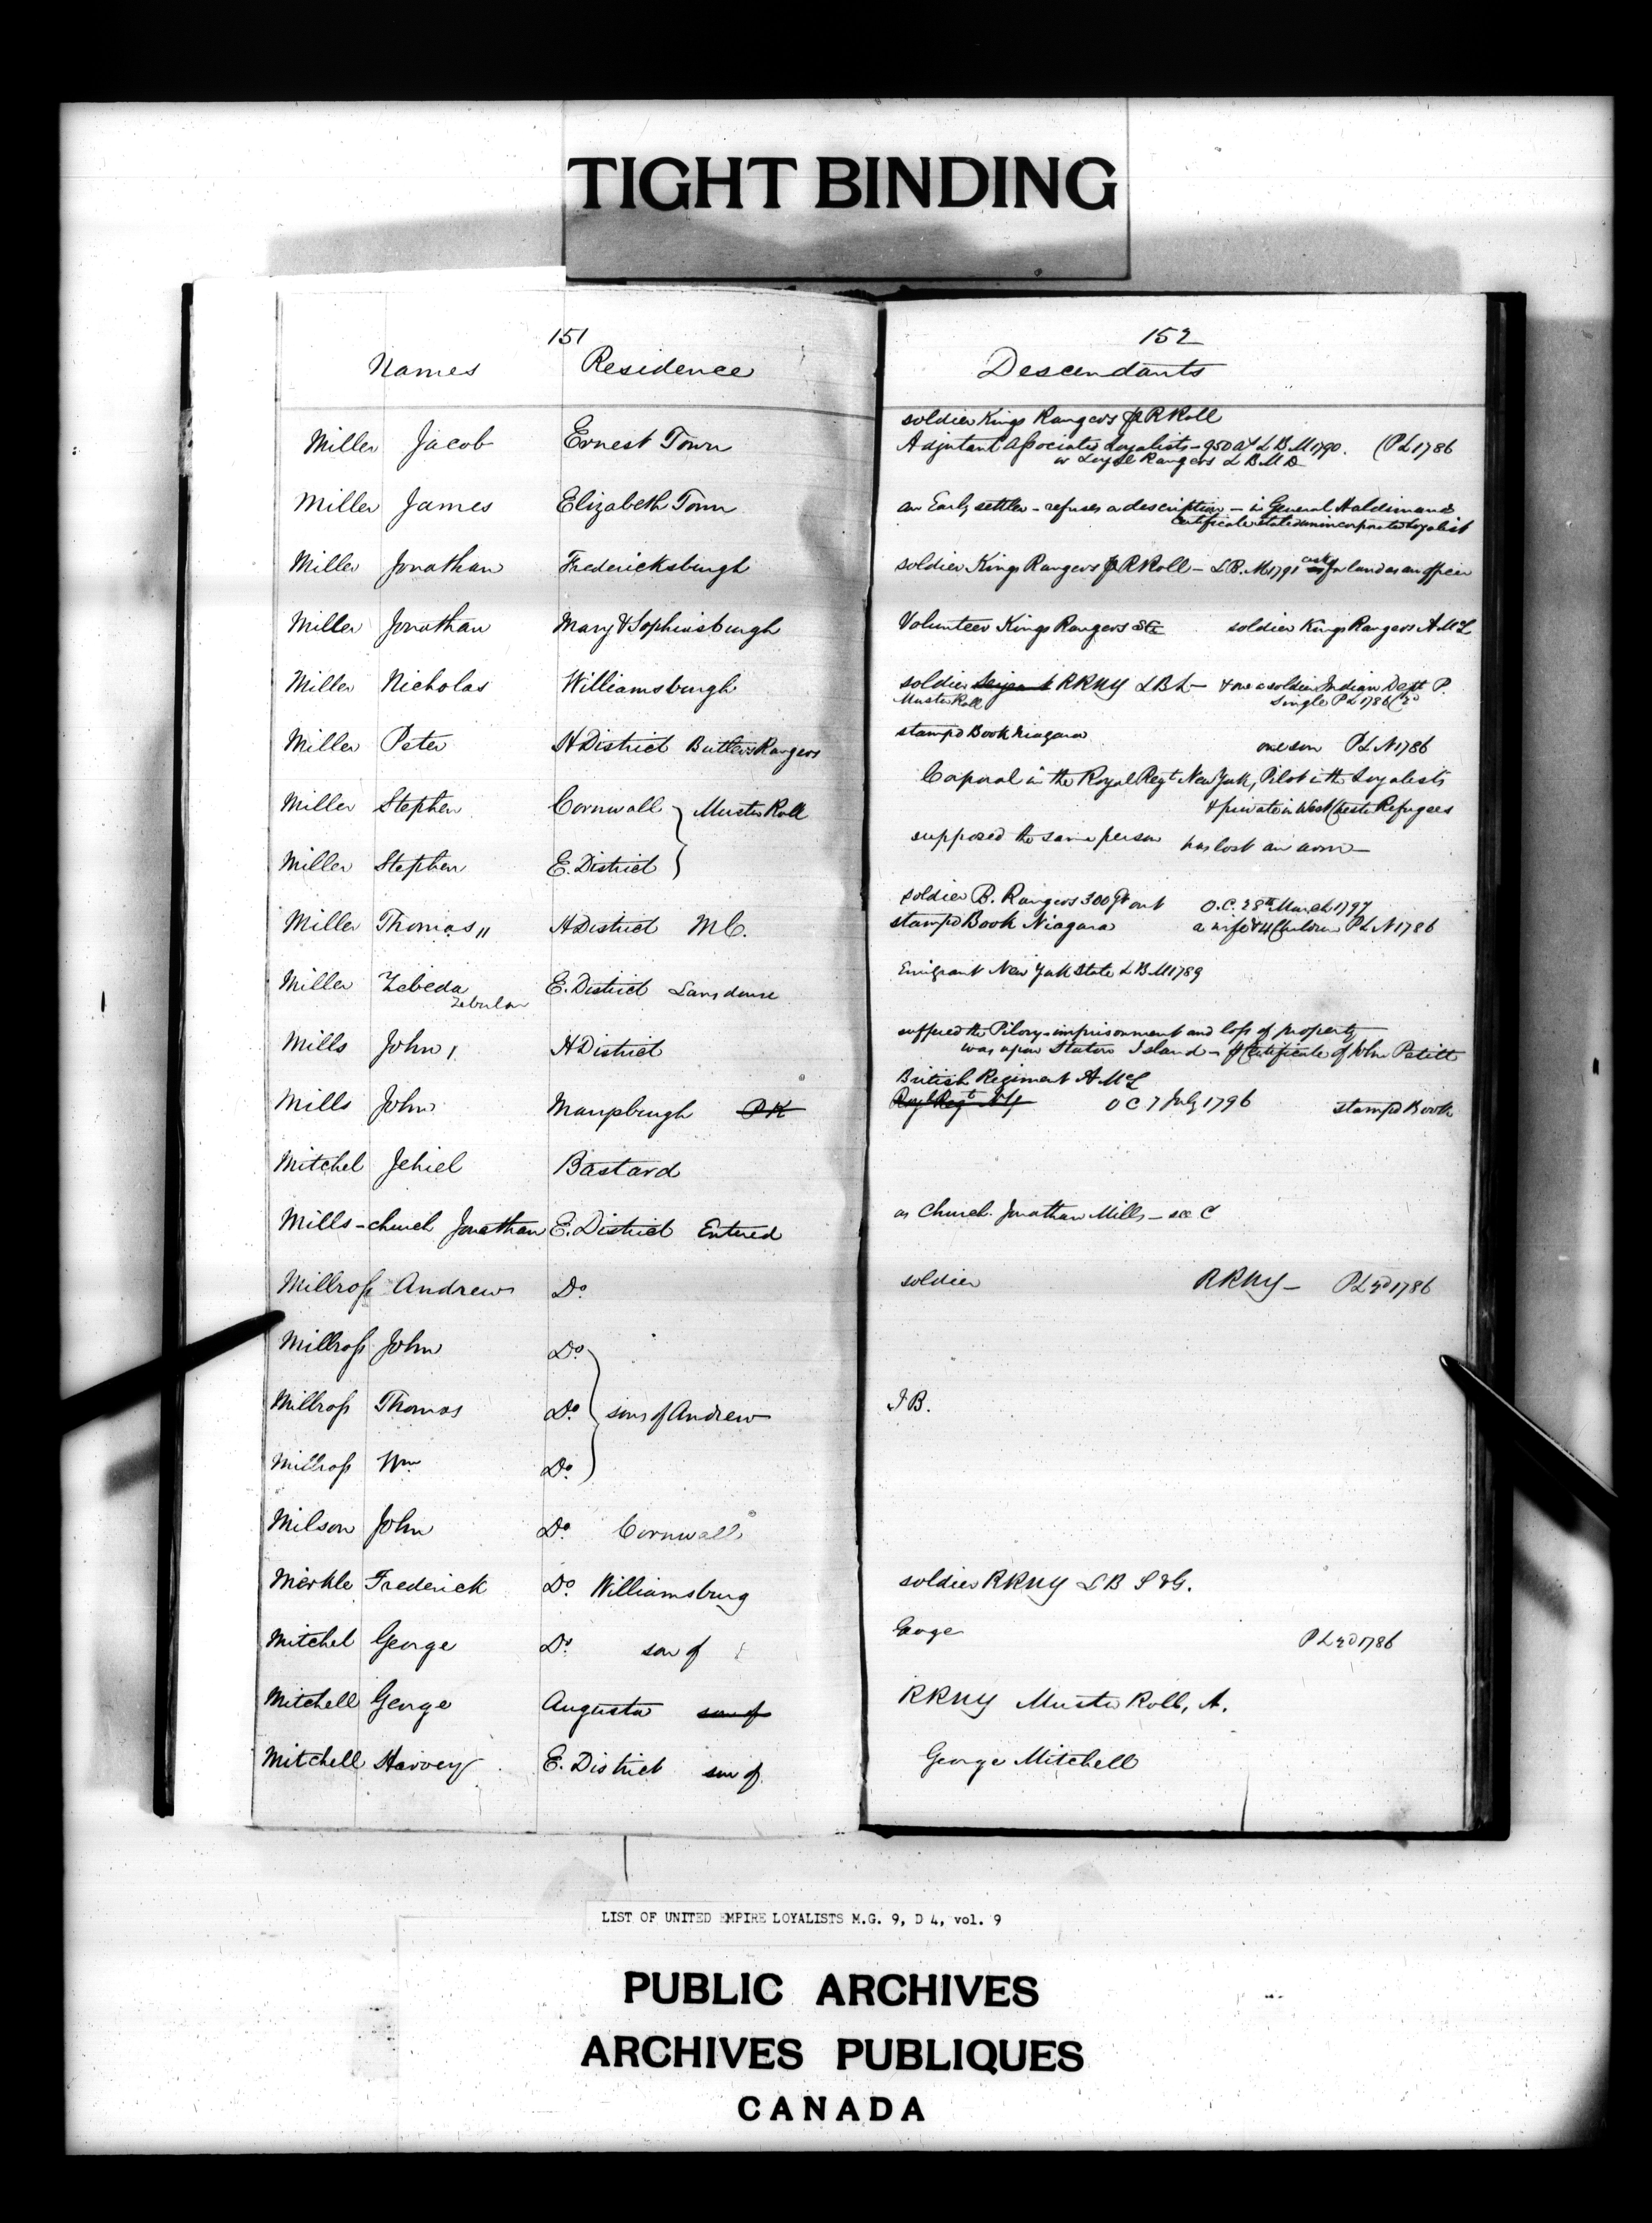 TIGHT BINDING
151
Names Residence
Miller Jacob Ernest Town
Miller James Elizabeth Town
Miller Jonathan Fredericksburgh
Miller Jonathan Mary & Sophiasburgh
Miller Nicholas Williamsburgh
Miller Peter H District Butlers Rangers
Miller Stephen Cornwall } Muster Roll
Miller Stephen E. District }
Miller Thomas " H District M C.
Miller Zebeda E. District Lansdowne
Zebulon
Mills John 1 H District
Mills John Marysburgh P K
Mitchel Jehiel Bastard
Mills-church Jonathan E. District Entered
Millross Andrew Do
Millross John Do
Millross Thomas Do } sons of Andrew
Millross Wm Do
Milson John Do Cornwall
Merkle Frederick Do Williamsburg
Mitchel George Do son of
Mitchell George Augusta son of
Mitchell Harvey E. District son of
152
Descendants
soldier Kings Rangers PR Roll
Adjutant Associated Loyalists - 950 as L B M 1790. (P L 1786
or Loyal Rangers L B M D
an Early settler - refuses a description - in General Haldimand
Certificate stated unincorporated Loyalist
soldier Kings Rangers PR Roll - L.B. M 1791 asks for land as an officer
Volunteer Kings Rangers soldier Kings Rangers A McL
soldier Serjeant RRNY L B L - & one a soldier Indian Dept P.
Muster Roll single P L 1786
stampd Book Niagara
one son P L N 1786
Corporal in the Royal Regt New York, Pilot in the Loyalists
& private in West Chester Refugees
supposed the same person has lost an arm
soldier B. Rangers O.C. 28th March 1797
stampd Book Niagara a wife & 4 Children P L N 1786
Emigrant New York State L B M 1789
suffered the Pilory - imprisonment and loss of property
was upon Staten Island - Certificate of John Petitt
British Regiment A McL
Royl Regt NY O C 7 July 1796 stampd Book
as Church. Jonathan Mills - see C
soldier RRNY - P L 2d 1786
I B.
soldier RRNY L B S & G.
George P L 2d 1786
RRNY Muster Roll, A.
George Mitchell
LIST OF UNITED EMPIRE LOYALISTS M.G. 9, D 4, vol. 9
PUBLIC ARCHIVES
ARCHIVES PUBLIQUES
CANADA